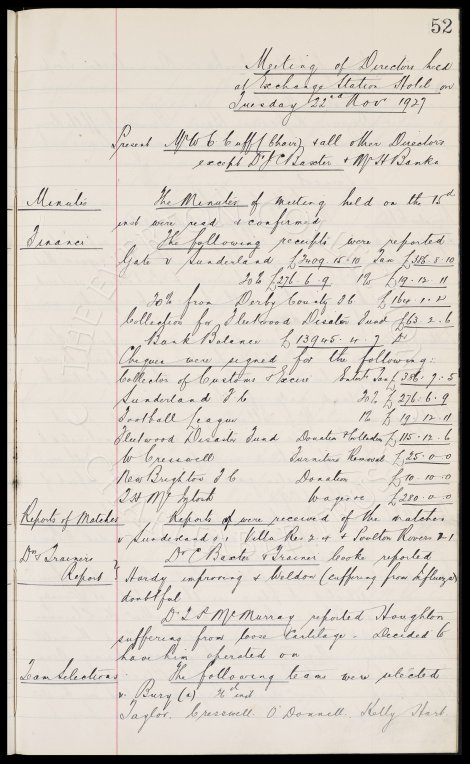 52
Meeting of Directors held
at Exchange Station Hotel on
Tuesday 22nd Nov 1927
Present Mr W C Cuff (Chair) & all other Directors
except Dr J C Baxter & Mr H Banks
Minutes The Minutes of meeting held on the 15th
inst were read & confirmed
Financi The following receipts were reported
Gate v Sunderland £2409.15.10 Tax £386.8.10
20% £276.6.9 1% £19.12.11
20% from Derby County FC £164.1.2
Collection for Fleetwood Disaster Fund £63.2.6
Bank Balance £13945.4.7 Dr
Cheques were signed for the following:
Collector of Customs & Excise Entertt Tax £386.9.5
Sunderland F C 20% £276.6.9
Football League 1% £19.12.11
Fleetwood Disaster Fund Donation & Collection £115.12.6
W Cresswell Furniture Removal £25.0.0
New Brighton F C Donation £10.10.0
T H McIntosh Wages &c £280.0.0
Reports of Matches Reports were received of the matches
v Sunderland 0-1 Villa Res 2-4 & Poulton Rovers 2-1
Drs & Trainers Dr C Baxter & Trainer Cooke reported
Report Hardy improving & Weldon (suffering from Influenza)
doubtful
McMurray reported Houghton
suffering from loose cartilage. Decided to
have him operated on
Team Selections The following teams were selected
v. Bury (a) inst
Taylor. Cresswell. O'Donnell. Kelly Hart